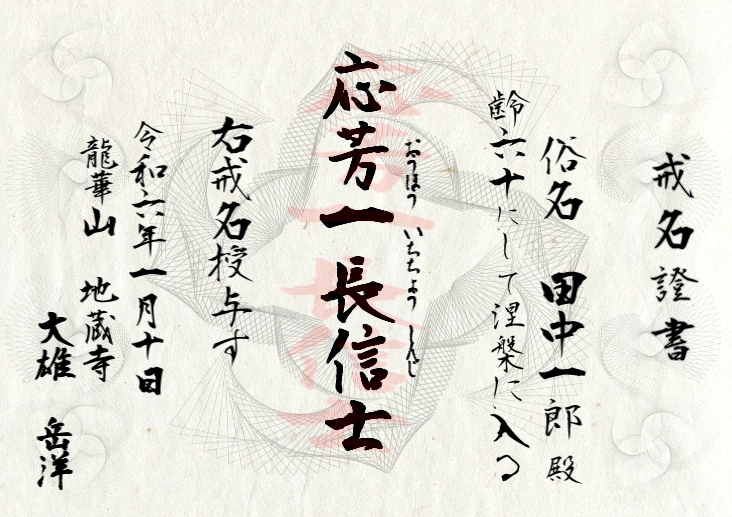 戒名證書
俗名 田中一郎殿
齢六十にして涅槃に入る
おうほう いちちょう しんじ
応芳一長信士
右戒名授与す
令和六年一月十日
龍華山 地蔵寺
大雄 岳洋